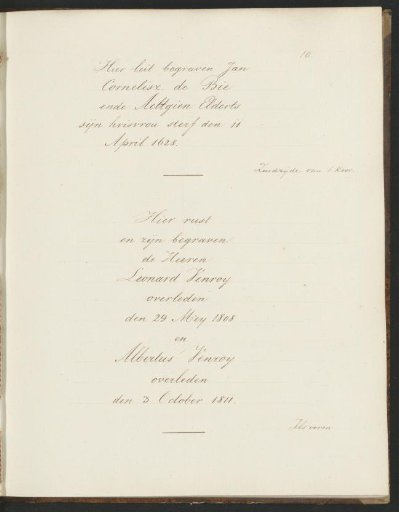 10
Hier leit begraven Jan
Cornelisz de Bie
ende Aeltgien Elderts
sijn huisvrou sterf den 11
April 1628.
Zuidzijde van 't Koor.
Hier rust
en zijn begraven
de Heeren
Leonard Venroy
overleden
den 29 Mey 1808
en
Albertus Venroy
overleden
den 3 October 1811.
Als voren